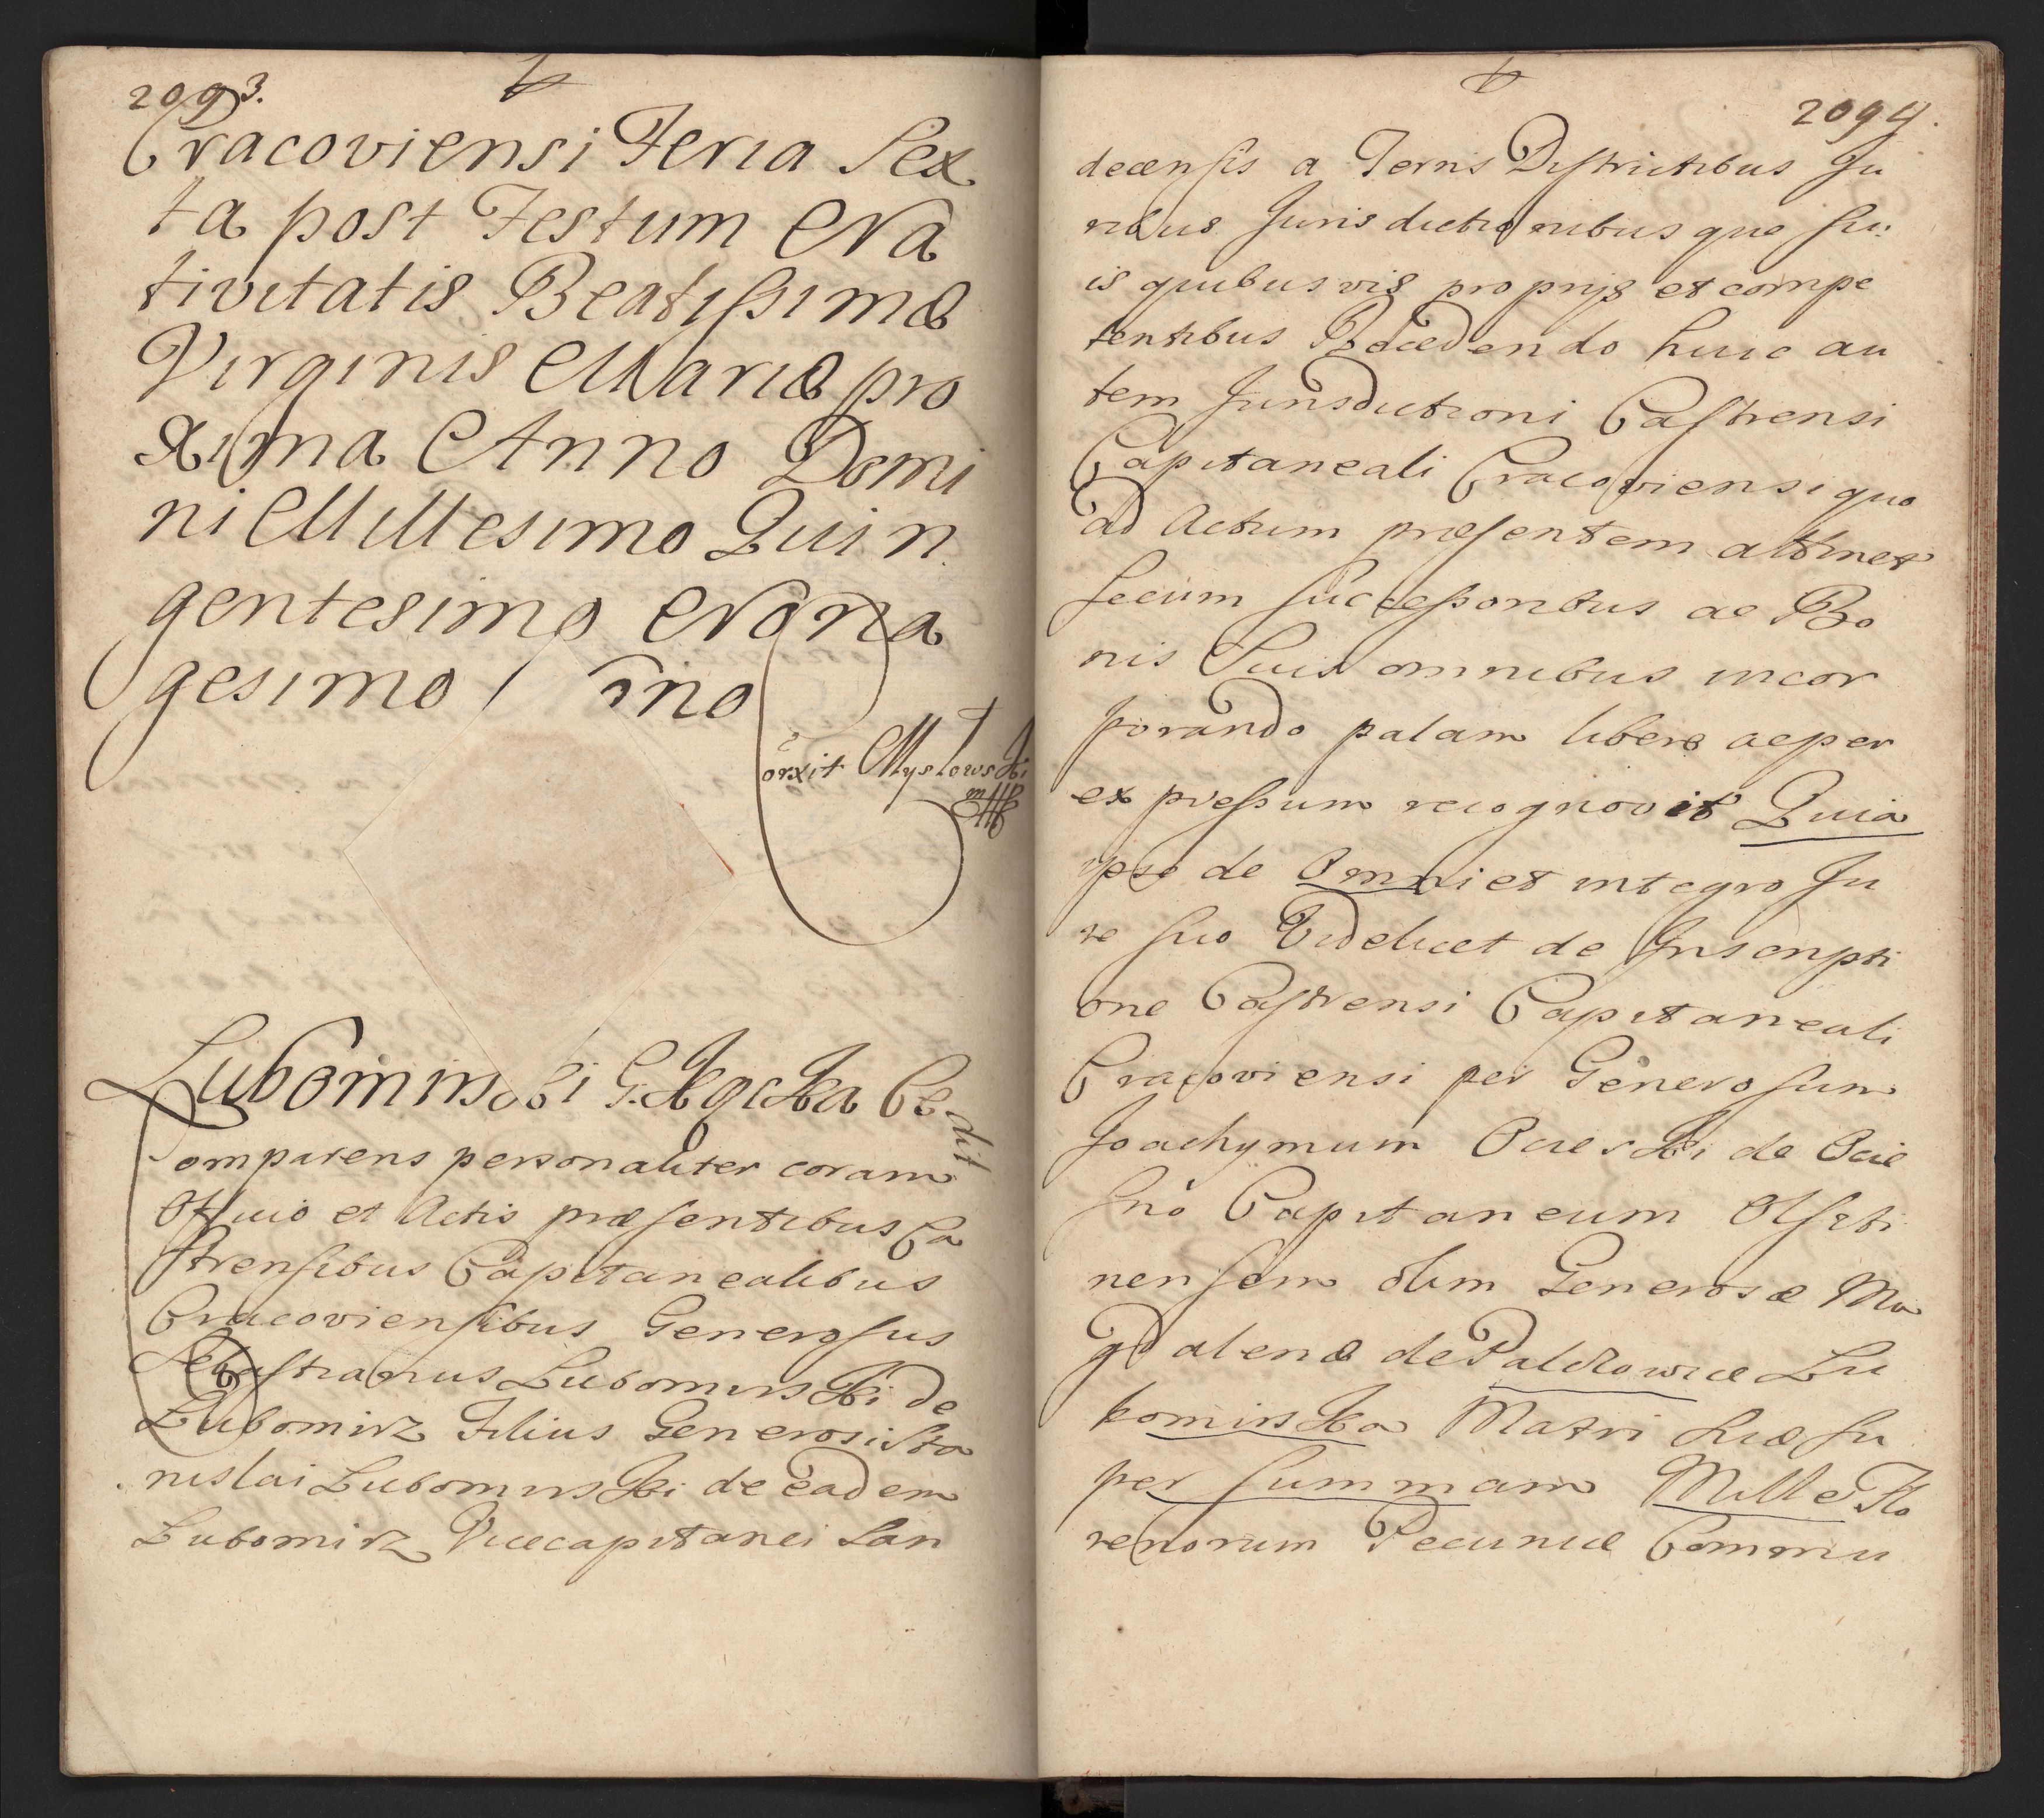 2093.
Cracoviensi Feria Sex
ta post Festum Na
tivitatis Beatissimæ
Virginis Mariæ pro
xima Anno Domi
ni Millesimo Quin
gentesimo Nona
gesimo
orxit Mysłowski
mpp
Lubomirski G. Cedit
Comparens personaliter coram
Officio et Actis præsentibus Ca
strensibus Capitanealibus
Cracoviensibus Generosus
Sebastianus Lubomirski de
Lubomirz Filius Generosi Sta
nislai Lubomirski de eadem
Lubomirz Vicecapitanei San
2094.
decensis a Terris Districtibus Ju
ribus Jurisdictionibusque su
is quibusvis proprijs et compe
tentibus Recedendo huic au
tem Jurisdictioni Castrensi
Capitaneali Cracoviensi quo
ad Actum præsentem attinet
secum successoribus ac Bo
nis Suis omnibus incor
porando palam libere ac per
expressum recognovit Quia
ipse de Omni et integro Ju
re suo Videlicet de Inscripti
one Castrensi Capitaneali
Cracoviensi per Generosum
Joachymum Ocieski de Ocie
sno Capitaneum Olszti
nensem olim Generosæ Ma
gdalenæ de Lu
bomirska Matri suæ su
per summam Mille Flo
renorum Pecuniæ Commu